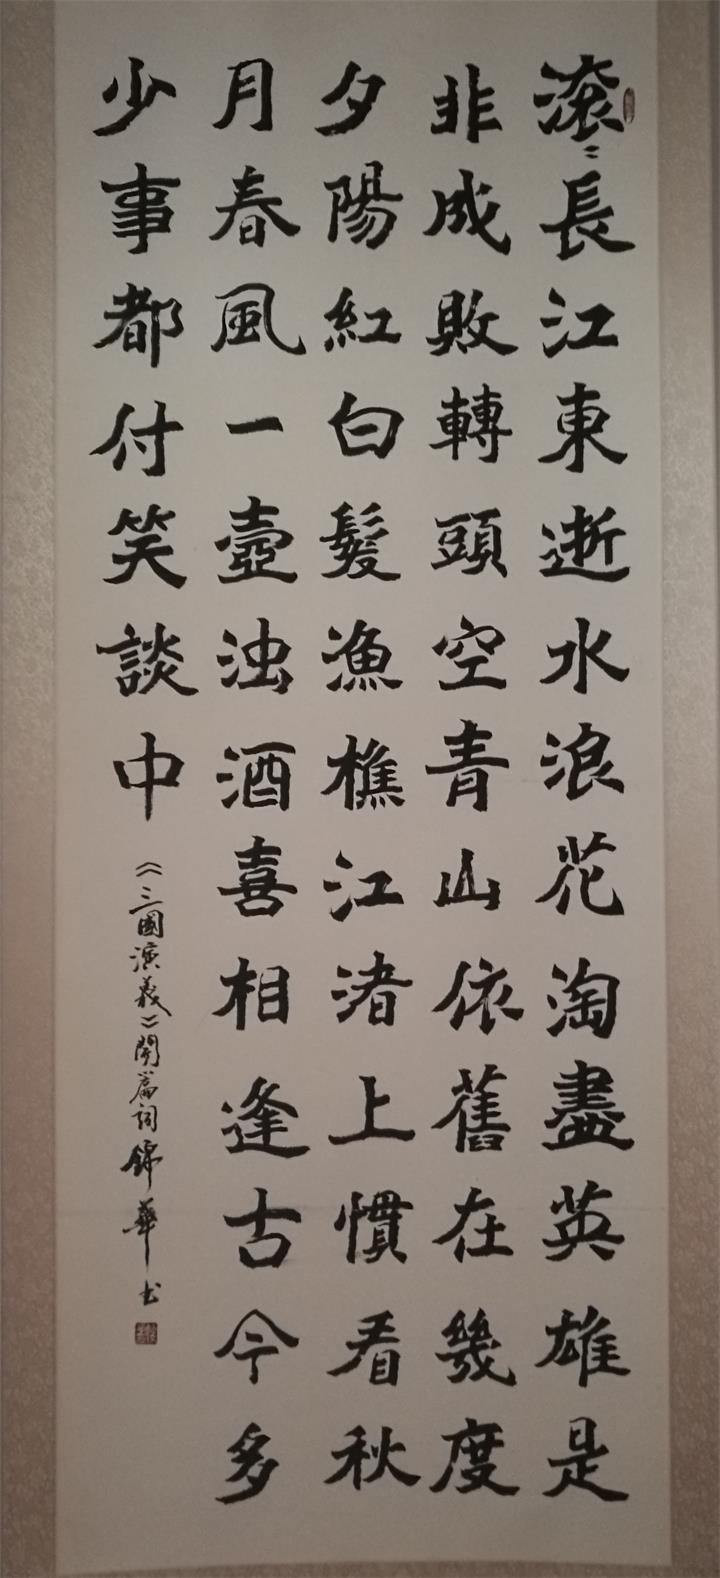 滚〻長江東逝水浪花淘盡英雄是
非成敗轉頭空青山依舊在幾度
夕陽紅白髮漁樵江渚上慣看秋
月春風一壺浊酒喜相逢古今多
少事都付笑談中
《三國演義》開篇詞錦華书